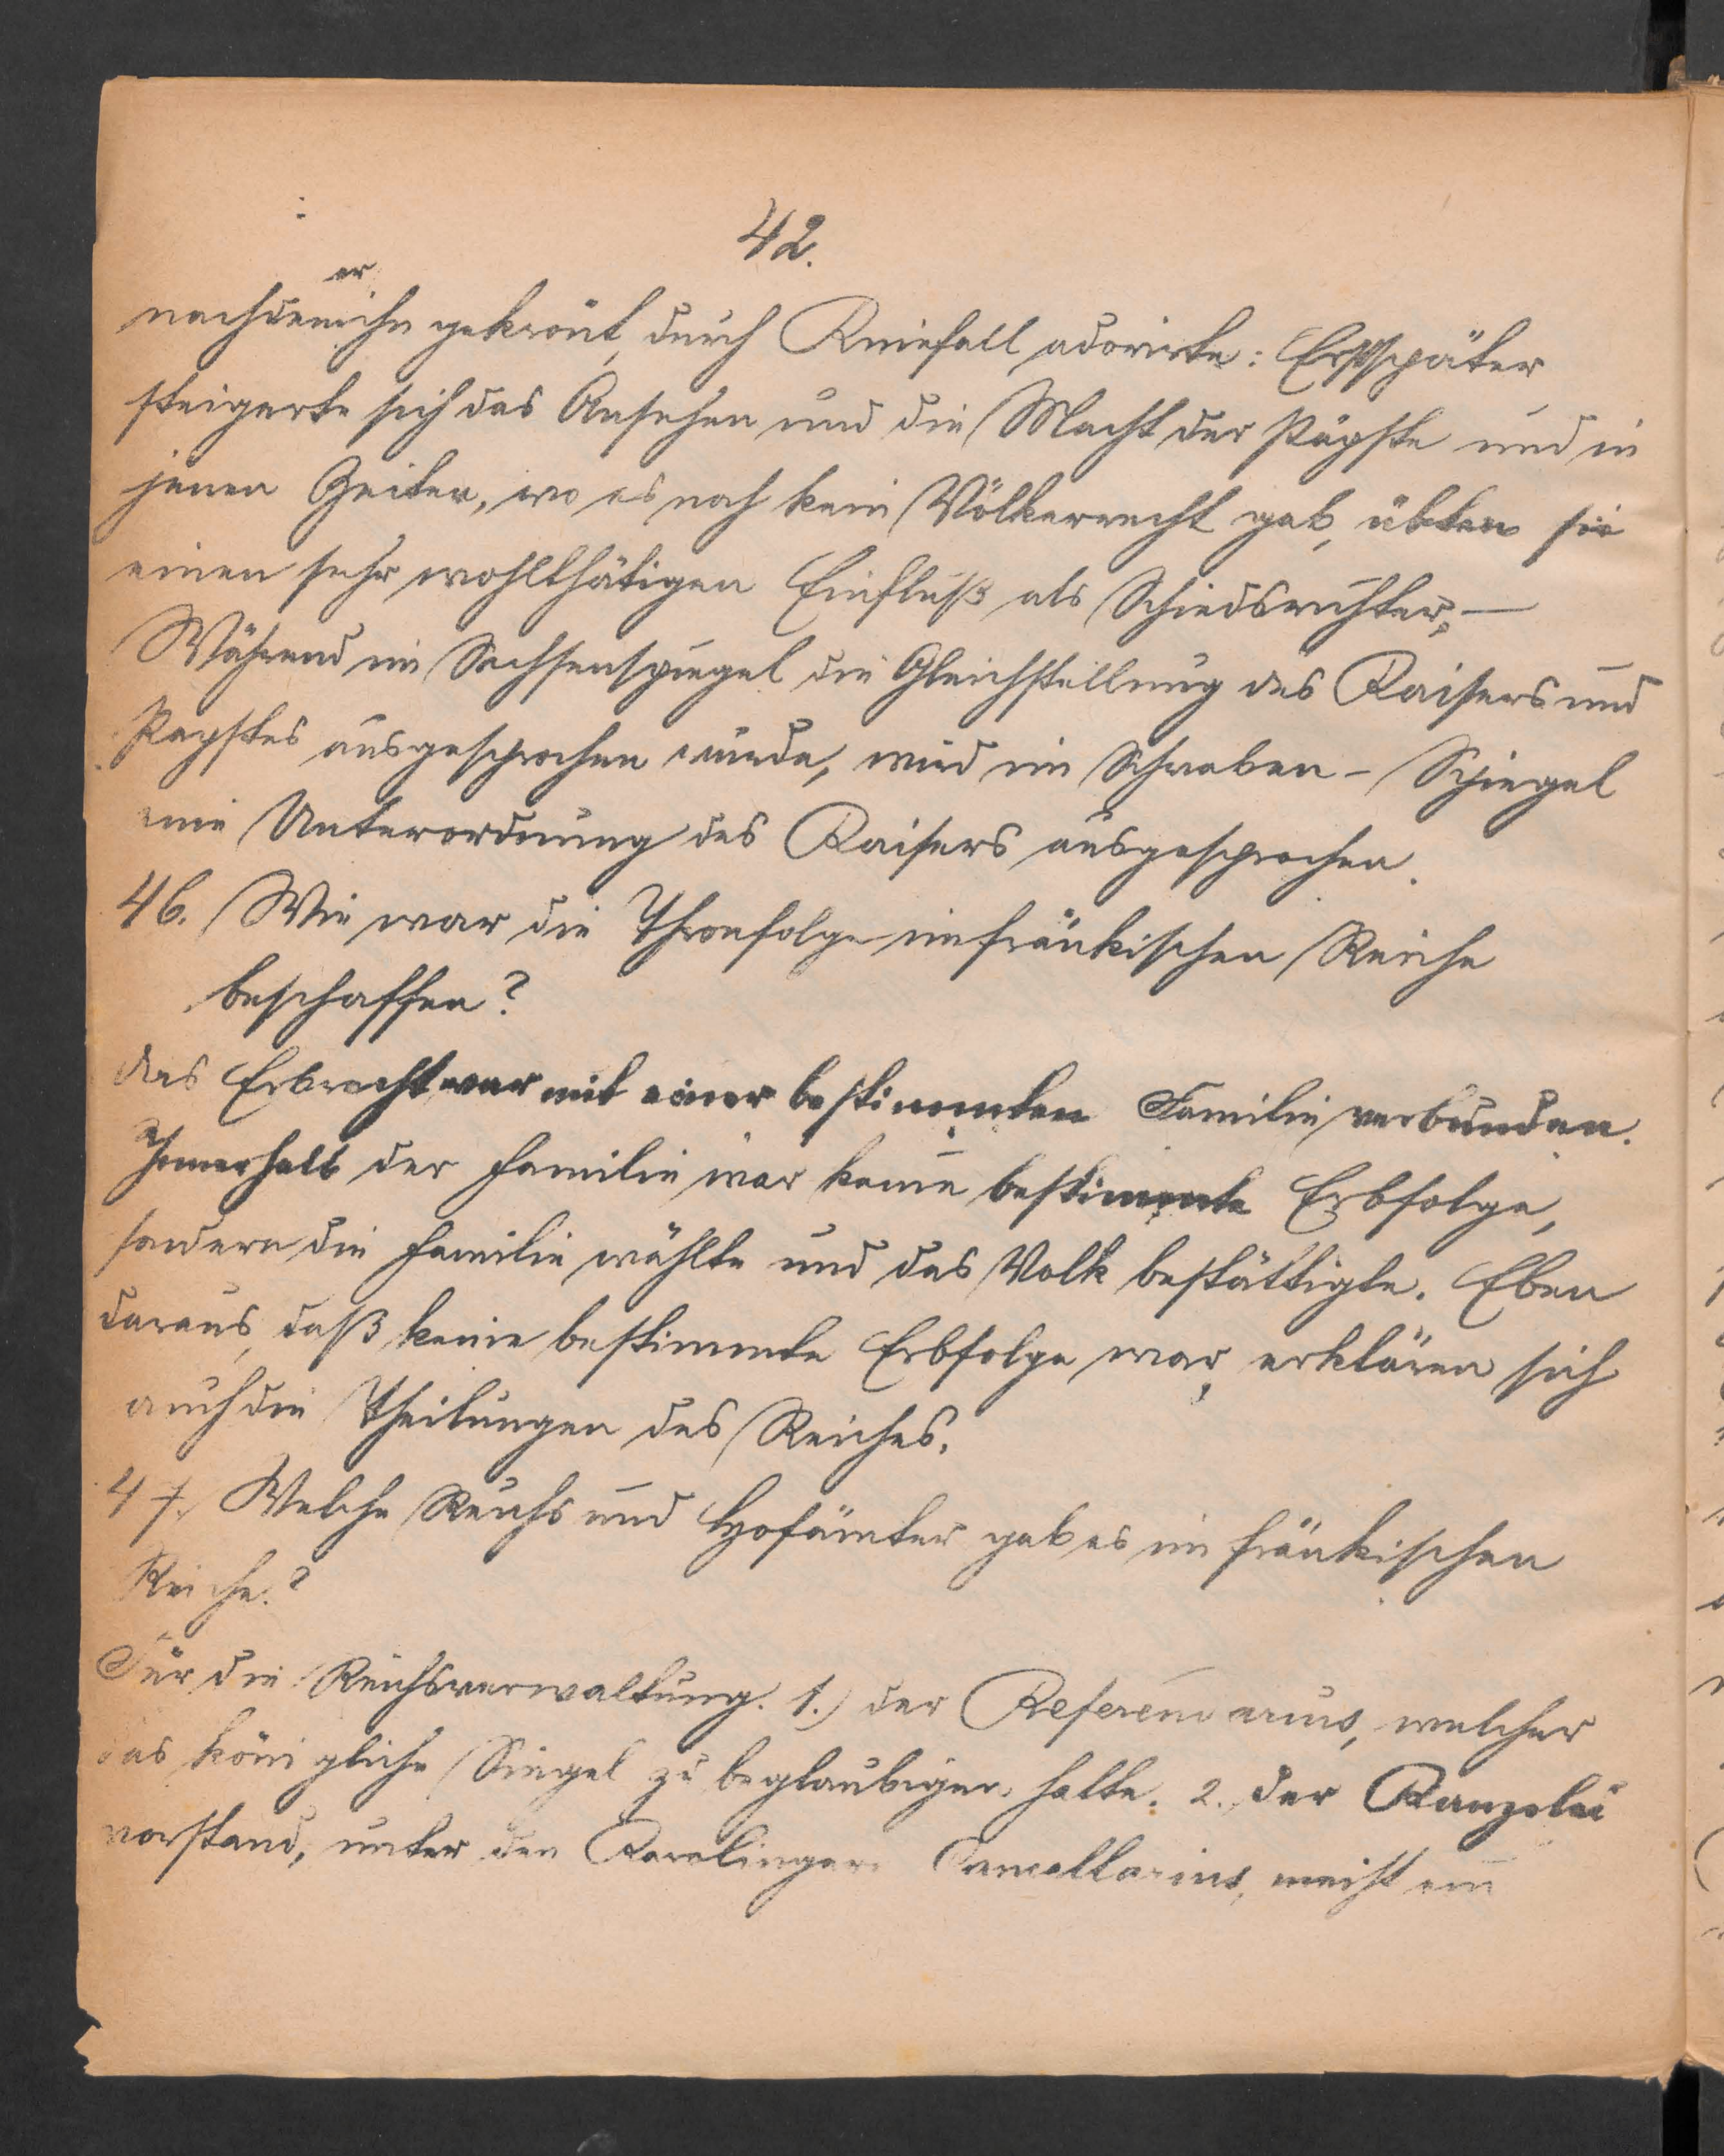 42.
er
nachdem ihn gekrönt, durch Kniefall adorirte: Erst später
steigerte sich das Ansehen und die Macht der Päpste und in
jenen Zeiten, wo es noch kein Völkerrecht gab, übten sie
einen sehr wohlthätigen Einfluß als Schiedsrichter, —
Während im Sachsenspiegel die Gleichstellung des Kaisers und
Papstes ausgesprochen wurde, wird im Schwaben-Spiegel
eine Unterordnung des Kaisers ausgesprochen.
46. Wie war die Thronfolge im fränkischen Reiche
beschaffen?
Das Erbrecht war mit einer bestimmten Familie verbunden.
Innerhalb der Familie war keine bestimmte Erbfolge,
sondern die Familie wählte und das Volk bestättigte. Eben
daraus, daß keine bestimmte Erbfolge war, erklären sich
auch die Theilungen des Reiches.
47. Welche Reichs und Hofämter gab es im fränkischen
Reiche?
Für die Reichsverwaltung. 1.) der Referendarius, welcher
das königliche Siegel zu beglaubigen hatte. 2. der Kanzelei
vorstand, unter den Karolingern Cancellarius, meist ein